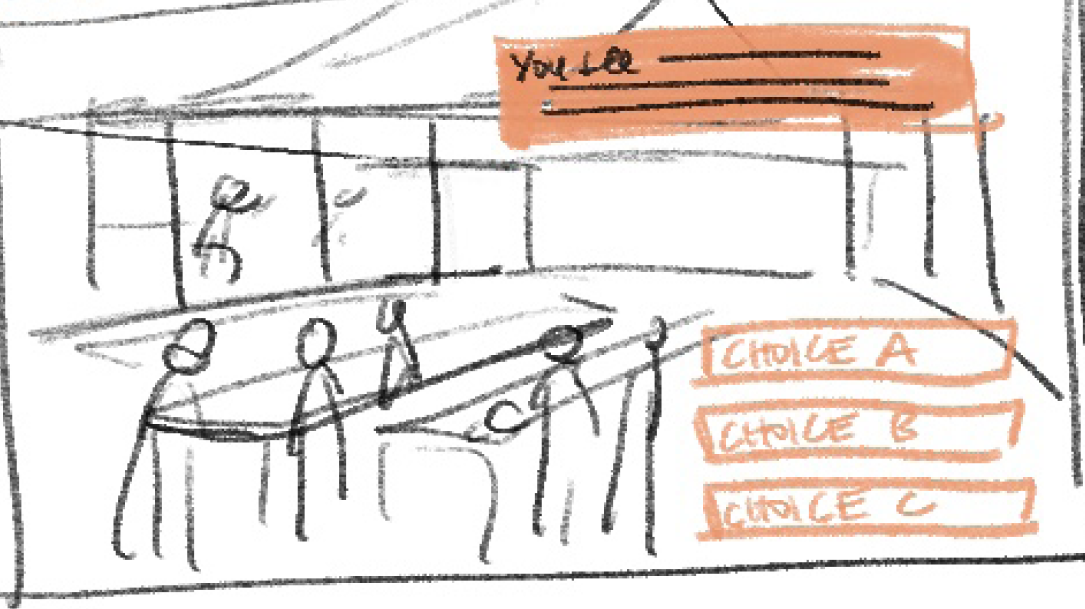 You see
CHOICE A
CHOICE B
CHOICE C